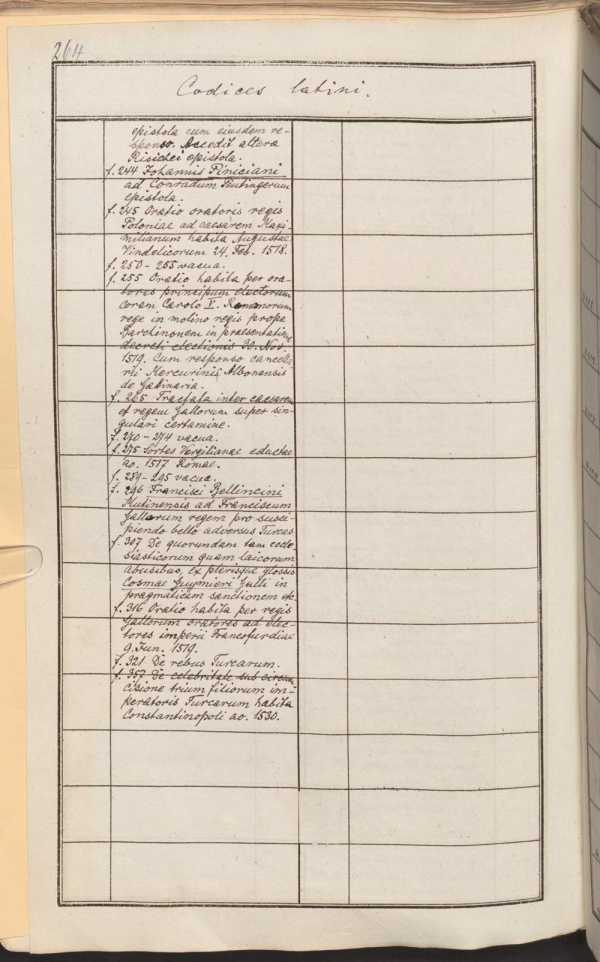 264
Codices latini.
epistola cum eiusdem re-
sponso. Accedit altera
Risichei epistola.
f. 244 Johannis Piniciani
ad Conradum Peutingerum
epistola.
f. 245 Oratio oratoris regis
Poloniae ad caesarem Maxi
milianum habita Augustae
Vindelicorum 24. Feb. 1518.
f. 250-255 vacua.
f. 255 Oratio habita per ora-
tores principum electorum
coram Carolo V. Romanorum
rege in molino regis prope
Barchinonem in praesentatione
decreti electionis 30. Nov.
1519. Cum responso cancella
rii Mercurini Albonensis
de Gatinaria.
f. 265 Tractata inter caesarem
et regem Gallorum super sin-
gulari certamine.
f. 270-274 vacua.
f. 275 Sortes Vergilianae eductae
ao. 1517 Romae.
f. 289-295 vacua.
f. 296 Francisci Bellincini
Mutinensis ad Franciscum
Gallorum regem pro susci-
piendo bello adversus Turcas
f. 307 De quorundam tam eccle
siasticorum quam laicorum
abusibus, ex plerisque glossis
Cosmae Guymieri Galli in
pragmaticam sanctionem etc.
f. 316 Oratio habita per regis
Gallorum oratores ad elec-
tores imperii Francofurdiae
9. Jun. 1519.
f. 321 De rebus Turcarum.
f. 357 De celebritate sub circum
cisione trium filiorum im-
peratoris Turcarum habita
Constantinopoli ao. 1530.